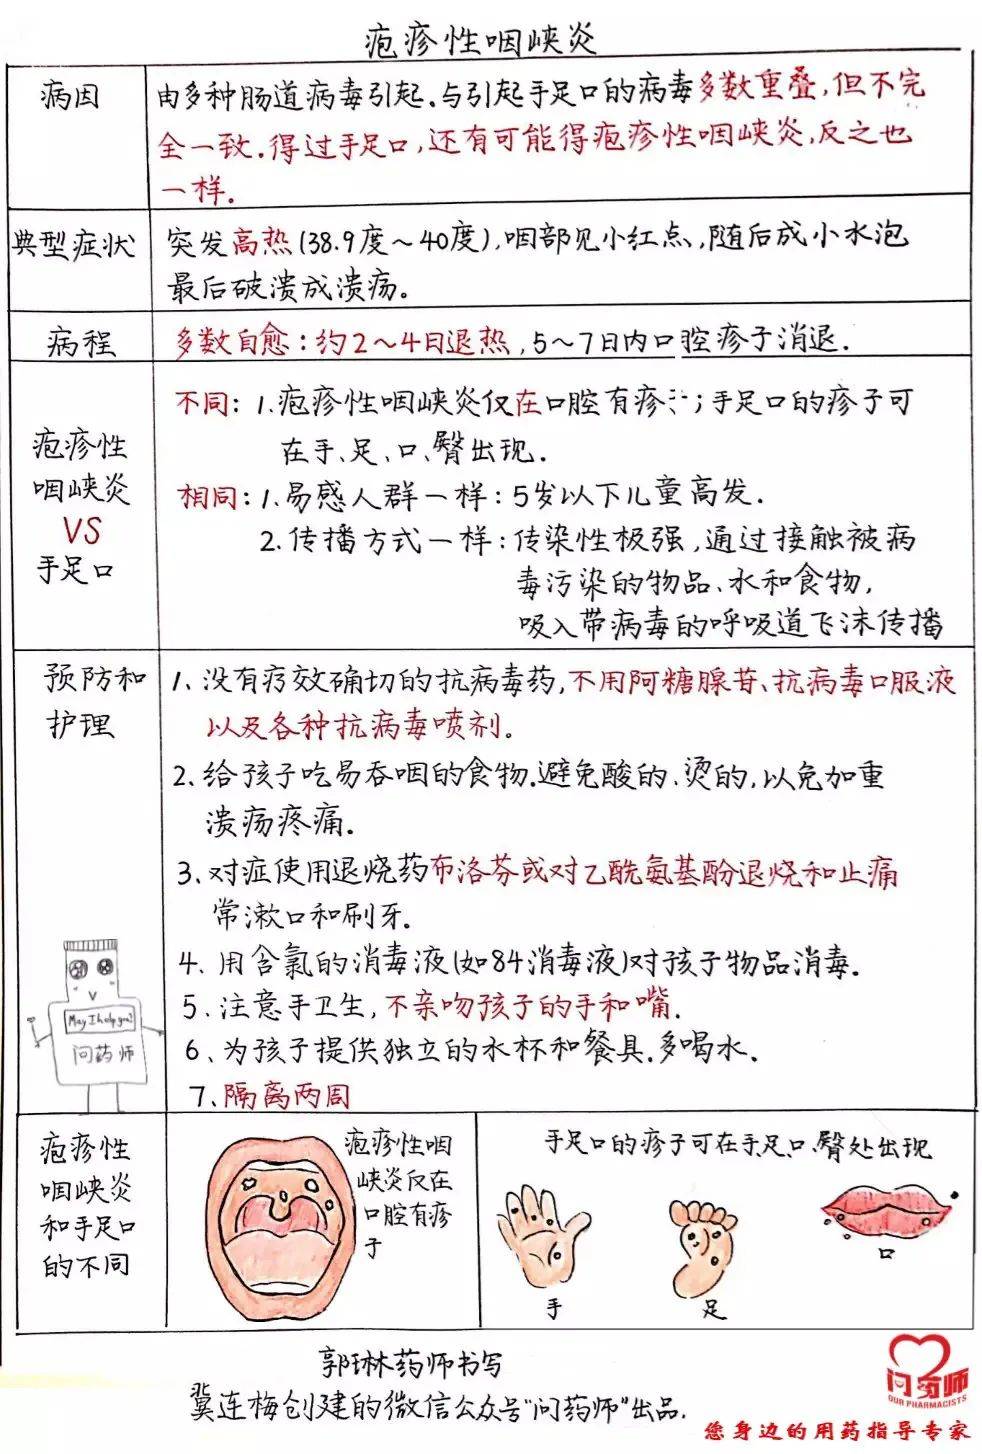 疱疹性咽峡炎
病因
由多种肠道病毒引起.与引起手足口的病毒多数重叠,但不完
全一致.得过手足口,还有可能得疱疹性咽峡炎,反之也
一样.
典型症状
突发高热(38.9度~40度),咽部见小红点,随后成小水泡
最后破溃成溃疡。
病程
多数自愈:约2~4日退热,5~7日内口腔疹子消退.
疱疹性
咽峡炎
VS
手足口
不同:1.疱疹性咽峡炎仅在口腔有疹;手足口的疹子可
在手、足、口、臀出现.
相同:1.易感人群一样:5岁以下儿童高发.
2.传播方式一样:传染性极强,通过接触被病
毒污染的物品、水和食物,
吸入带病毒的呼吸道飞沫传播
预防和
护理
1、没有疗效确切的抗病毒药,不用阿糖腺苷、抗病毒口服液
以及各种抗病毒喷剂。
2、给孩子吃易吞咽的食物.避免酸的、烫的,以免加重
溃疡疼痛.
3、对症使用退烧药布洛芬或对乙酰氨基酚退烧和止痛
常漱口和刷牙.
4、用含氯的消毒液(如84消毒液)对孩子物品消毒.
5、注意手卫生,不亲吻孩子的手和嘴.
6、为孩子提供独立的水杯和餐具.多喝水.
7、隔离两周
May I help you?
问药师
疱疹性
咽峡炎
和手足口
的不同
疱疹性咽
峡炎仅在
口腔有疹
子
手足口的疹子可在手、足、口、臀处出现
手
足
口
郭琳药师书写
冀连梅创建的微信公众号"问药师"出品.
问药师
OUR PHARMACISTS
您身边的用药指导专家